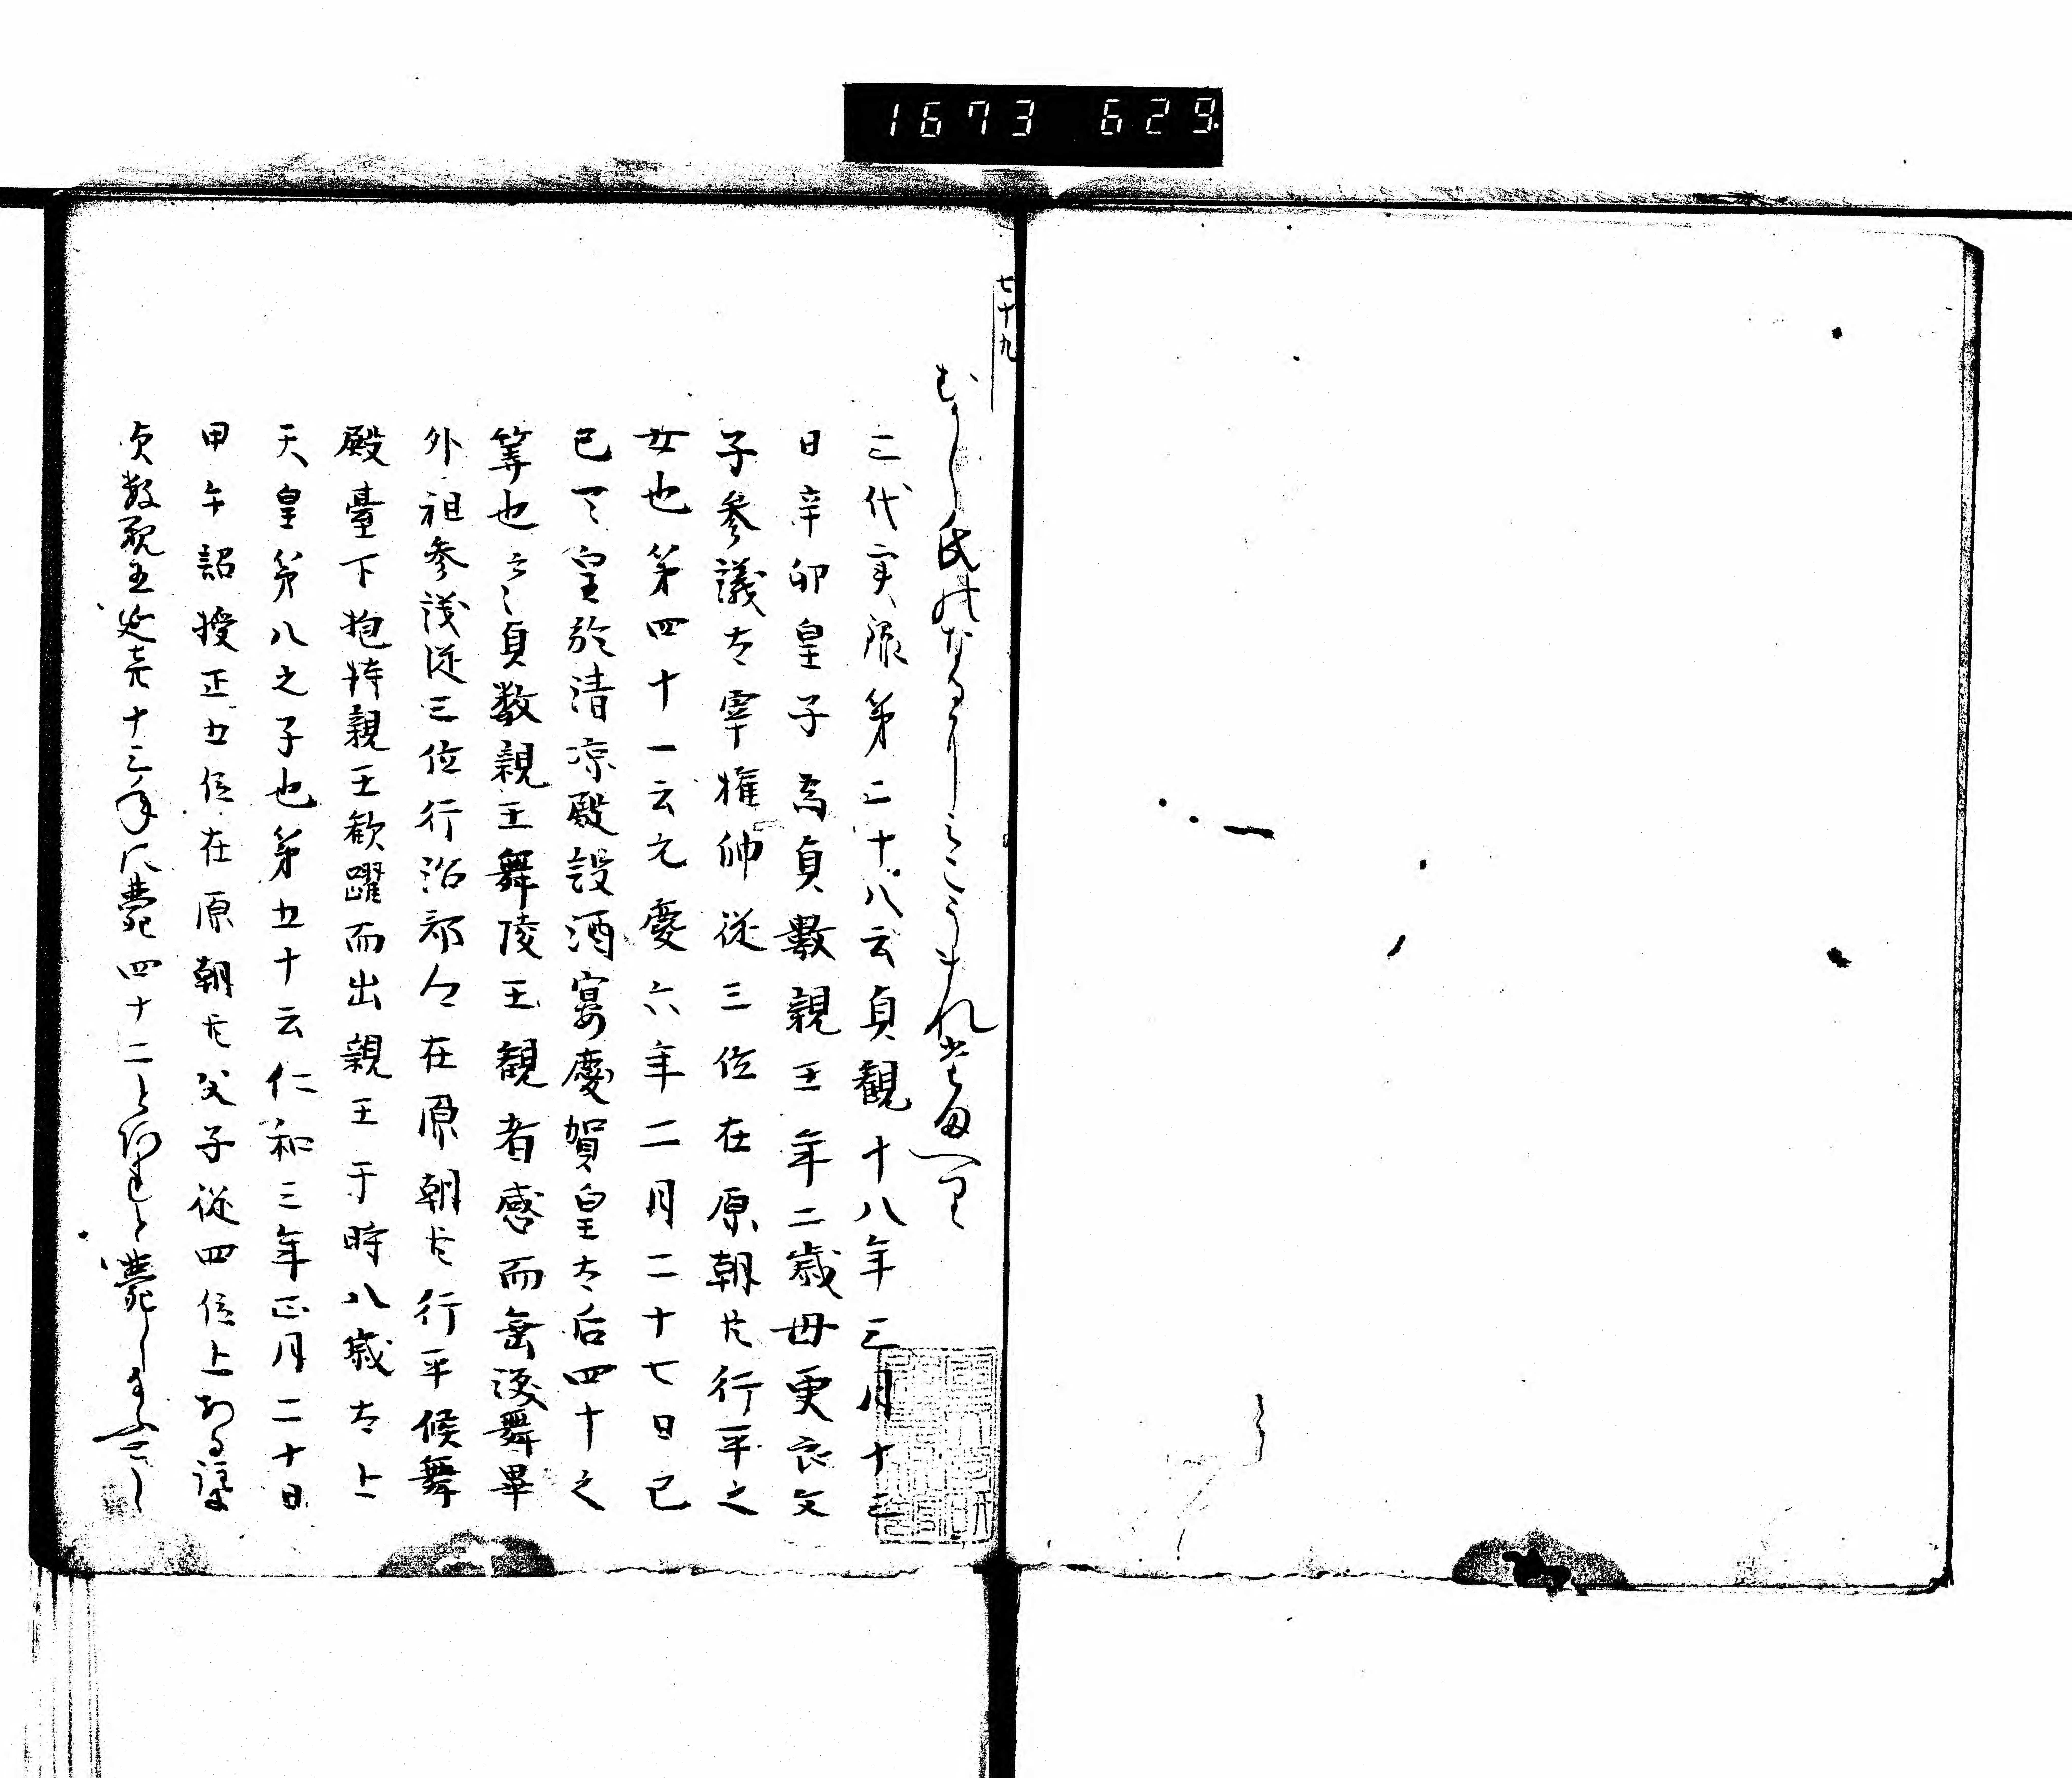 1673 629
七十九
むかし氏のなかにみこうまれ給へり
三代実録第二十八云貞観十八年三月十三
日辛卯皇子為貞數親王年二歳母更衣文
子参議太宰権帥従三位在原朝臣行平之
女也第四十一云元慶六年二月二十七日己
巳天皇於清凉殿設酒宴慶賀皇太后四十之
筭也云々貞数親王舞陵王観者感而垂涙舞畢
外祖参議従三位行治部卿在原朝臣行平候舞
殿臺下抱持親王歓躍而出親王于時八歳太上
天皇第八之子也第五十云仁和二年正月二十日
甲午詔授正五位在原朝臣父子従四位上
貞数親王延喜十六年に薨四十二と薨し